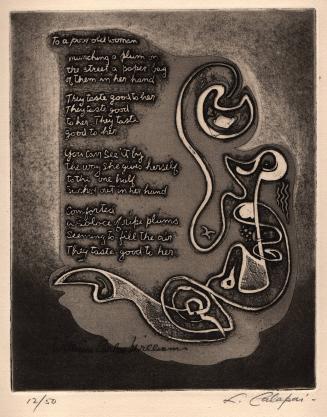 To a poor old woman
munching a plum on
the street a paper bag
of them in her hand
They taste good to her
They taste good
to her. They taste
good to her
You can see it by
the way she gives herself
to the one half
sucked out in her hand
Comforted
a solace of ripe plums
Seeming to fill the air
They taste good to her
William Carlos Williams
12/50
L. Calapai -